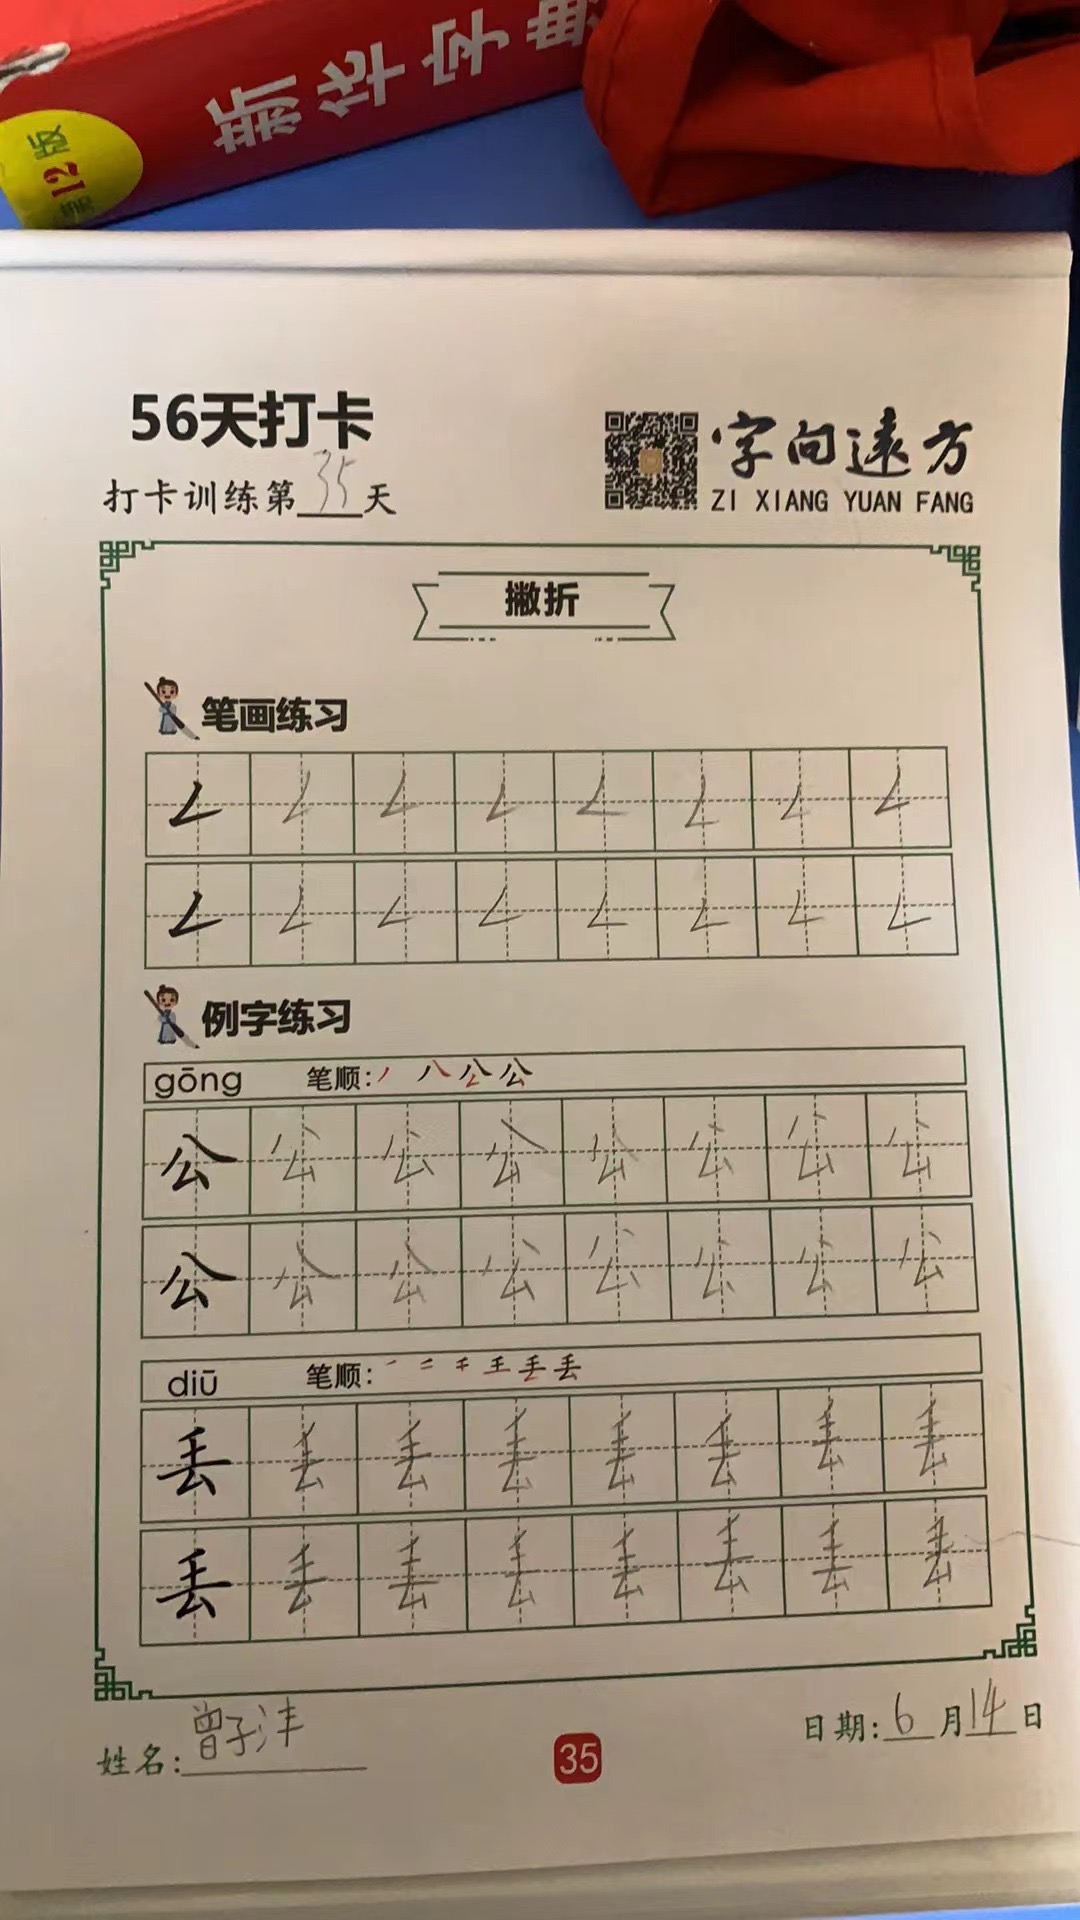 新华字典
第12版
56天打卡
打卡训练第35天
字向遠方
ZI XIANG YUAN FANG
撇折
笔画练习
𠃋 𠃋 𠃋 𠃋 𠃋 𠃋 𠃋 𠃋
𠃋 𠃋 𠃋 𠃋 𠃋 𠃋 𠃋 𠃋
例字练习
gōng 笔顺: 丿 八 公 公
公 公 公 公 公 公 公 公
公 公 公 公 公 公 公 公
diū 笔顺: 一 二 千 王 丢 丢
丢 丢 丢 丢 丢 丢 丢 丢
丢 丢 丢 丢 丢 丢 丢 丢
姓名: 曾子沣
35
日期: 6月14日